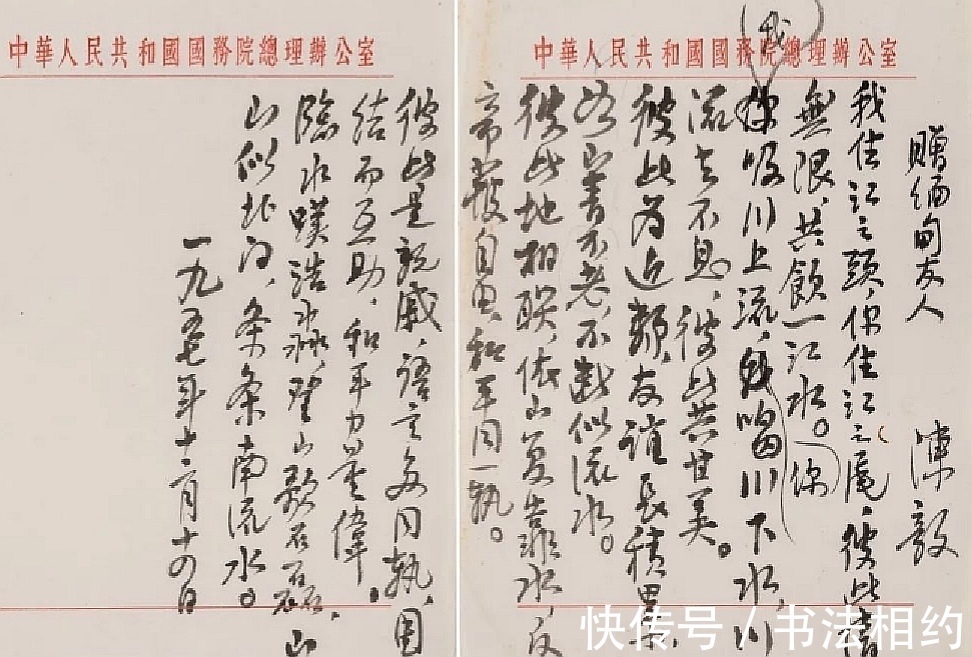 中華人民共和國國務院總理辦公室
贈缅甸友人 陳毅
我住江之頭,你住江之尾,彼此情
無限,共飲一江水。
你
我
吸川上流,喝川下水,川
流去不息,彼此共甘美。
彼此为近鄰,友谊長積累
山青不老,不断似流水。
彼此地相联,依山复靠水,反
帝自由,和平同一轨。
中華人民共和國國務院總理辦公室
彼此是親戚,语言多同轨,团
结而互助,和平力量偉。
臨水嘆浩淼,登山歌石磊,山
山似北向,条条南流水。
一九五七年十二月十四日
快传号/书法相约